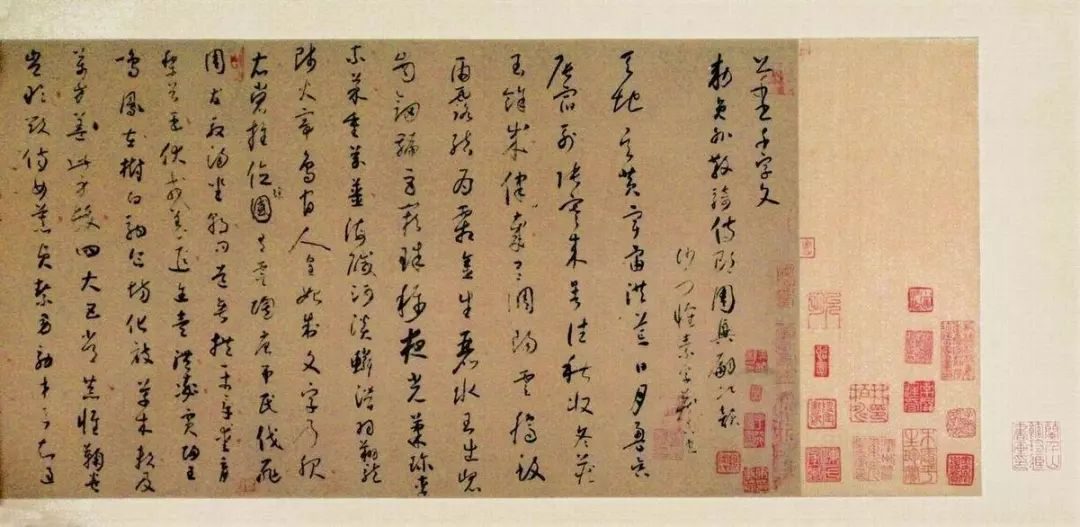 草書千字文
敕員外散騎侍郎周興嗣次韻
沙門懷素字藏真
天地玄黃宇宙洪荒日月盈昃
辰宿列張寒來暑往秋收冬藏
閏餘成歲律呂調陽雲騰致
雨露結為霜金生麗水玉出崑
崗劍號巨闕珠稱夜光菓珍李
柰菜重芥薑海鹹河淡鱗潛羽翔龍
師火帝鳥官人皇始制文字乃服
衣裳推位讓國有虞陶唐弔民伐罪
周發殷湯坐朝問道垂拱平章愛育
黎首臣伏戎羌遐邇壹體率賓歸王
鳴鳳在樹白駒食場化被草木賴及
萬方蓋此身髮四大五常恭惟鞠養
豈敢毀傷女慕貞潔男效才良知過